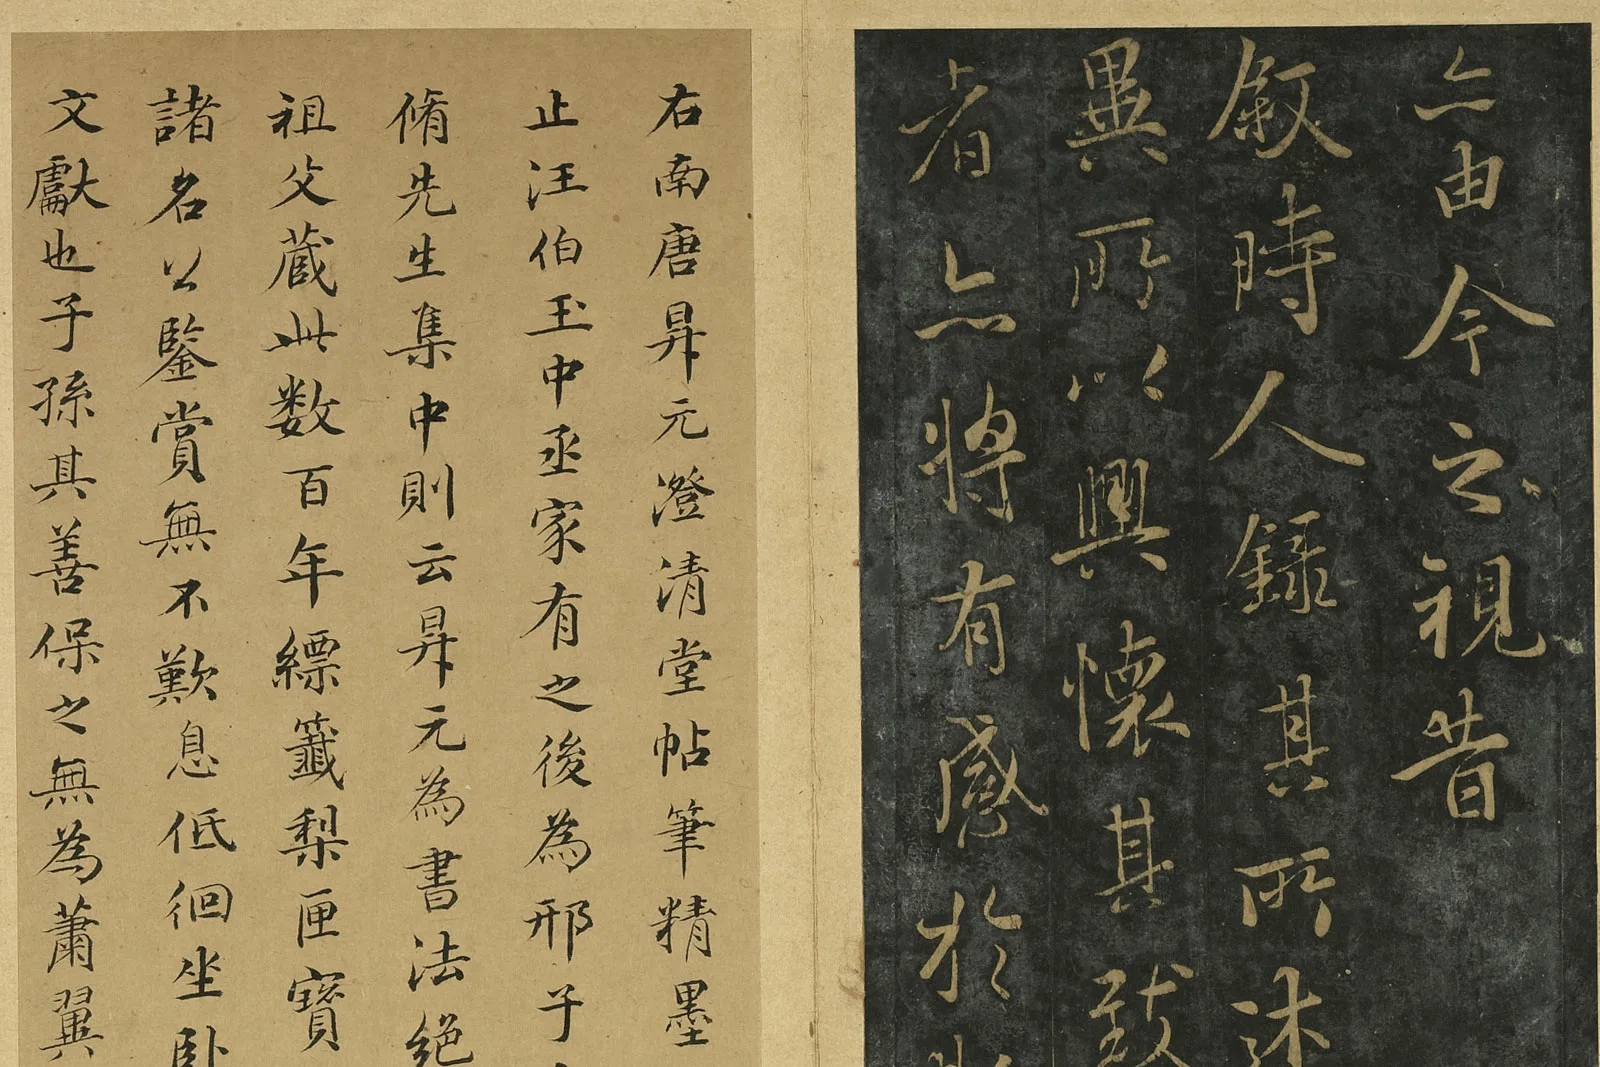 亦由今之視昔
敘時人錄其所述
異所以興懷其致
者亦將有感於斯
右南唐昇元澄清堂帖筆精墨
止汪伯玉中丞家有之後為邢子
脩先生集中則云昇元為書法絕
祖父蔵此数百年縹籤梨匣寶
諸名公鑒賞無不歎息低徊坐卧
文獻也子孫其善保之無為蕭翼